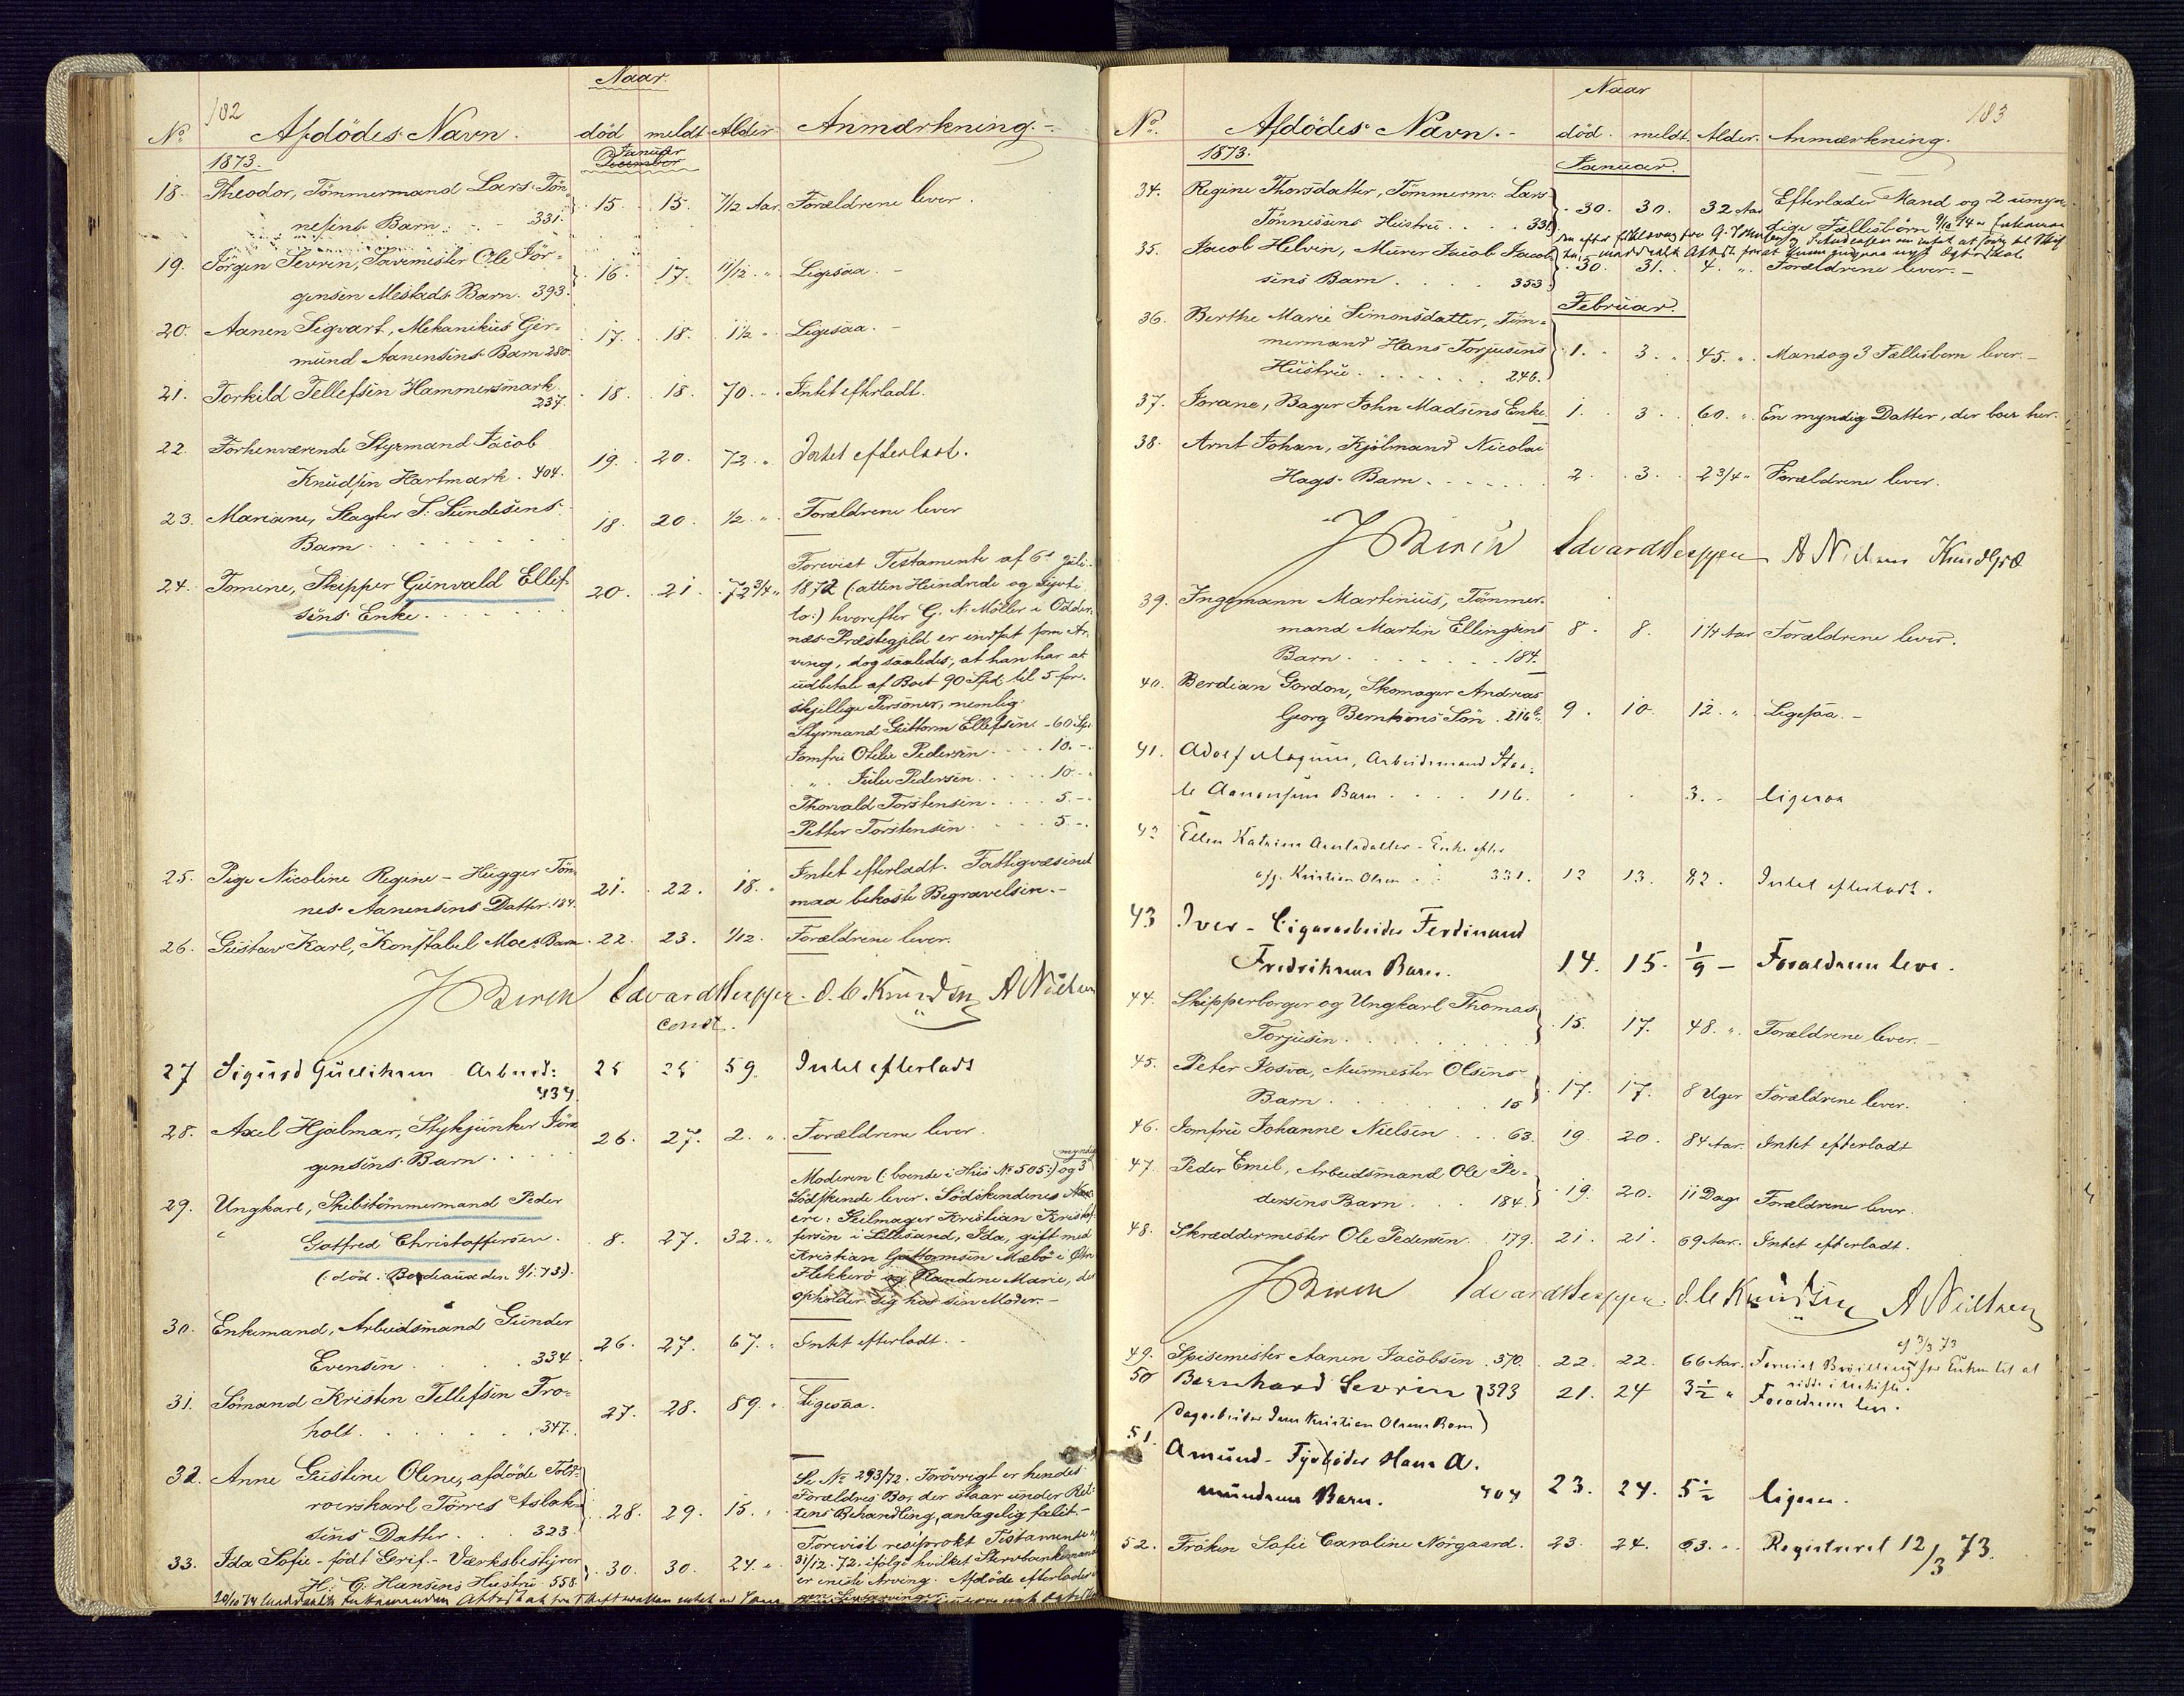 182
Naar.
No Afdödes Navn. död meldt Alder Anmærkning.-
1873. Januar
December
18. Theodor, Tömmermand Lars Tön=
nesens Barn. 331. 15. 15. 7/12 Aar. Forældrene lever.
19. Jörgen Sevrin, Farvermester Ole Jör=
gensen Mestads Barn. 393. 16. 17. 11/12 " Ligesaa. -
20. Aanen Sigvart, Mekanikus Ger=
mund Aanensens Barn 280. 17. 18. 1 1/2 " Ligesaa. -
21. Torkild Tellefsen Hammersmark.
237. 18. 18. 70. " Intet efterladt.
22. Forhenværende Styrmand Jacob
Knudsen Hartmark. 404. 19. 20. 72. " Intet efterladt.
23. Mariane, Slagter S. Sundesens
Barn 18. 20. 1/2 " Forældrene lever
24. Tomine, Skipper Gunvald Ellef=
sens Enke. 20. 21. 72 3/4 "
Forevist Testamente af 6te Juli
1872 (atten Hundrede og syvti
to:) hvorefter G. N. Möller i Odder=
næs Præstegjeld er indsat som Ar=
ving, dog saaledes, at han har at
udbetale af Boet 90 Spd til 5 for=
skjellige Personer, nemlig:
Styrmand Guttorm Ellefsen - 60 Sp.
Jomfru Otilie Pedersen 10.-
" Julie Pedersen 10.-
Thorvald Torstensen 5.-
Petter Torstensen 5.-
25. Pige Nicoline Regine - Hugger Tön=
nes Aanensens Datter. 184. 21. 22. 18. " Intet efterladt. Fattigvæsenet
maa bekoste Begravelsen.-
26. Gustav Karl, Konstabel Moes Barn. 22. 23. 1/12. Forældrene lever.
J Birch Edvard Heyer. O. C. Knudsen A Nielsen
const.
27 Sigurd Gulliksen Arbeid:
434. 25 25 59. Intet efterladt
28. Axel Hjalmar, Stykjunker Jörg=
gensens Barn 26. 27. 2. " Forældrene lever.
29. Ungkarl, Skibstömmermand Peder
Gotfred Christoffersen. 8. 27. 32. "
(: död i Bordeaux den 8/1.73:).
Moderen (: boende i Hus No 505:) og 3 myndige
Södskende lever. Södskendenes Navne
ere: Seilmager Kristian Kristof=
fersen i Lillesand, Ida, gift med
Kristian Guttormsen Mæbö i Öster
Flekkerö og Randine Marie, der
opholder sig hos sin Moder. -
30. Enkemand, Arbeidsmand Gunder
Evensen 334. 26. 27. 67. " Intet efterladt. -
31. Sömand Kristen Tellefsen Tro=
holt. 347. 27. 28. 89. " Ligesaa.
32. Anne Gustine Olene, afdöde Told=
roerskarl Törres Aslak=
sens Datter 323. 28. 29. 15. "
Se No 293/72. Forövrigt er hendes
Forældres Bo, der staar under Ret=
tens Behandling, antagelig falit.-
33. Ida Sofie - födt Grif - Værksbestyrer
H. C. Hansens Hustru. 558. 30. 30. 24. "
Forevist resiprokt Testamente af
31/12. 72. ifölge hvilket Stervboenkemand
er eneste Arving. Afdöde efterlader
183
Naar
No. Afdödes Navn.- död. meldt. Alder. Anmærkning.
1873. Januar.
34. Regine Thorsdatter, Tömmerm: Lars
Tönnesens Hustru 331. 30. 30. 32 Aar Efterlader Mand og 2 umyn=
dige Fællesbörn
35. Jacob Helvin, Murer Jacob Jacob=
sens Barn 353. 30. 31. 4. " Forældrene lever.-
Februar.
36. Berthe Marie Simonsdatter, Töm=
mermand Hans Torjusens
Hustru 246. 1. 3. 45. " Mand og 3 Fællesbörn lever. -
37. Jorane, Bager John Madsens Enke 1. 3. 60. " En myndig Datter, der boer her.
38. Arnt Johan, Kjölmand Nicolai
Hags Barn 2. 3. 2 3/4 " Forældrene lever.
J Birch Edvard Heyer A Nielsen
39. Ingemann Martinius, Tömmer=
mand Martin Ellingsens
Barn 184. 8. 8. 1 1/4 Aar Forældrene lever.
40. Berdian Gordon, Skomager Andreas
Georg Berntsens Sön. 216b. 9. 10. 12. " Ligesaa.-
41. Adolf Magnus, Arbeidsmand Staa=
le Aanensens Barn 116. 3. " ligesaa
42 Ellen Katrine Arntsdatter - Enke efter
afg. Kristian Olsen 331. 12 13. 82. Intet efterladt.
43 Iver - Cigararbeider Ferdinand
Fredriksens Barn. 14. 15. 1/9 - Forældrene leve.
44. Skipperborger og Ungkarl Thomas
Torjusen 15. 17. 48. " Forældrene lever. -
45. Peter Josva, Murmester Olsens
Barn 15 17. 17. 8 Uger Forældrene lever.
46. Jomfru Johanne Nielsen 63. 19. 20. 84 Aar. Intet efterladt
47. Peder Emil, Arbeidsmand Ole Pe=
dersens Barn 184. 19. 20. 11 Dage Forældrene lever.
48. Skræddermester Ole Pedersen. 179. 21. 21. 69 Aar. Intet efterladt.
J Birch Edvard Heyer. O. C. Knudsen A Nielsen
49. Spisemester Aanen Jacobsen. 370. 22. 22. 66 Aar. Forevist Bevilling af 3/3 73 for Enken til at
sidde i uskiftet.
50 Bernhard Sevrin 393 21. 24 3 1/2 " Forældrene leve.
(Dagarbeider Jens Kristian Olsens Barn)
51. Amund - Fyrböder Hans A.
mundsens Barn. 404 23. 24. 5 1/2 ligesaa.
52. Fröken Sofie Caroline Nörgaard. 23. 24. 63. " Registreret 12/3 73.